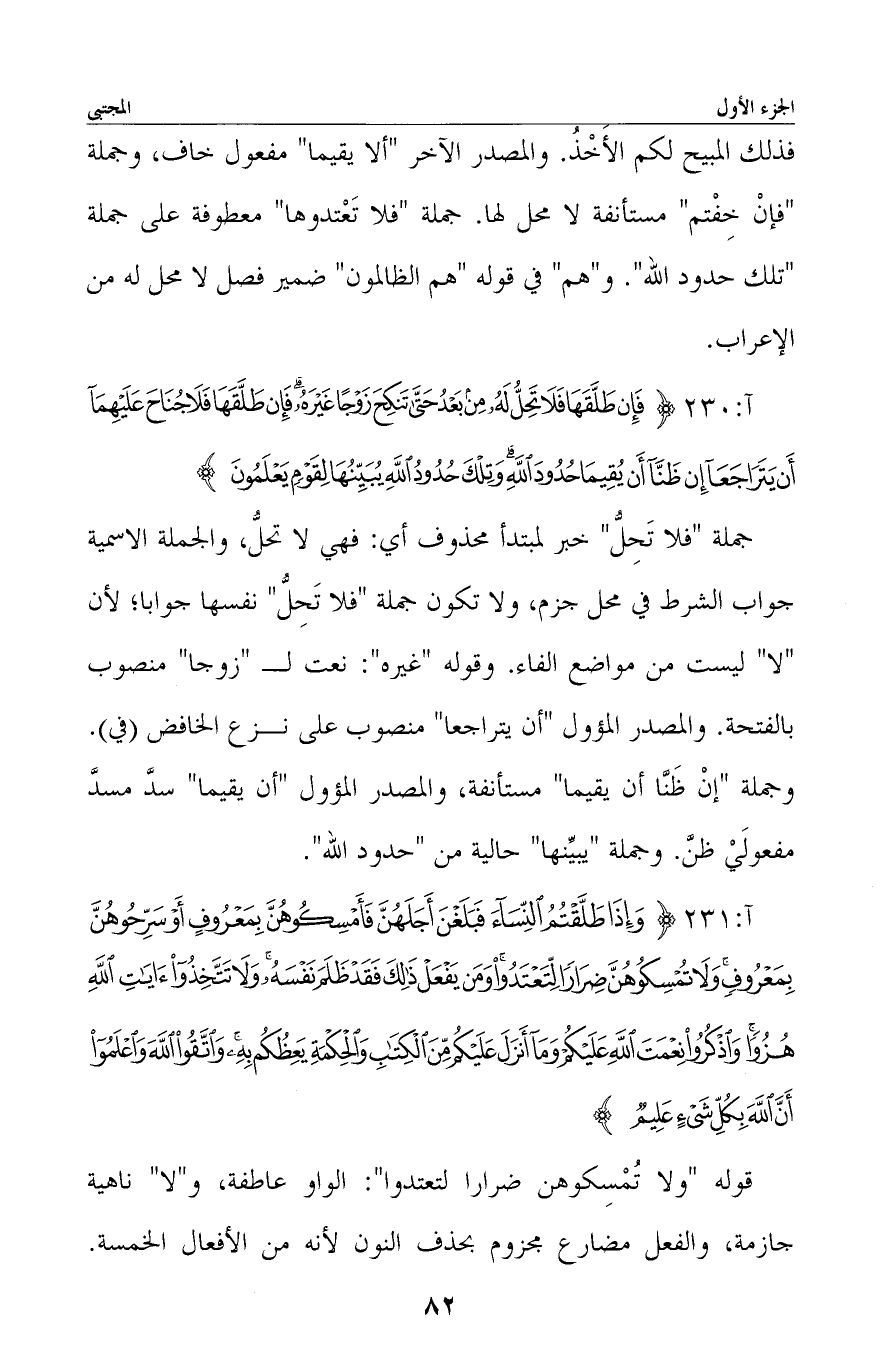 الجزء الأول المجتبى
فذلك المبيح لكم الأَخْذُ. والمصدر الآخر "ألا يقيما" مفعول خاف، وجملة
"فإنْ خِفْتم" مستأنفة لا محل لها. جملة "فلا تَعْتدوها" معطوفة على جملة
"تلك حدود الله". و"هم" في قوله "هم الظالمون" ضمير فصل لا محل له من
الإعراب.
آ: ٢٣٠ ﴿ فَإِن طَلَّقَهَا فَلَا تَحِلُّ لَهُۥ مِنۢ بَعْدُ حَتَّىٰ تَنكِحَ زَوْجًا غَيْرَهُۥ ۗ فَإِن طَلَّقَهَا فَلَا جُنَاحَ عَلَيْهِمَآ
أَن يَتَرَاجَعَآ إِن ظَنَّآ أَن يُقِيمَا حُدُودَ ٱللَّهِ ۗ وَتِلْكَ حُدُودُ ٱللَّهِ يُبَيِّنُهَا لِقَوْمٍ يَعْلَمُونَ ﴾
جملة "فلا تَحِلُّ" خبر لمبتدأ محذوف أي: فهي لا تحلُّ، والجملة الاسمية
جواب الشرط في محل جزم، ولا تكون جملة "فلا تَحِلُّ" نفسها جوابا؛ لأن
"لا" ليست من مواضع الفاء. وقوله "غيره": نعت لـــ "زوجا" منصوب
بالفتحة. والمصدر المؤول "أن يتراجعا" منصوب على نـــزع الخافض (في).
وجملة "إنْ ظَنَّا أن يقيما" مستأنفة، والمصدر المؤول "أن يقيما" سدَّ مسدَّ
مفعولَيْ ظنَّ. وجملة "يبيِّنها" حالية من "حدود الله".
آ: ٢٣١ ﴿ وَإِذَا طَلَّقْتُمُ ٱلنِّسَآءَ فَبَلَغْنَ أَجَلَهُنَّ فَأَمْسِكُوهُنَّ بِمَعْرُوفٍ أَوْ سَرِّحُوهُنَّ
بِمَعْرُوفٍ ۚ وَلَا تُمْسِكُوهُنَّ ضِرَارًا لِّتَعْتَدُوا۟ ۚ وَمَن يَفْعَلْ ذَٰلِكَ فَقَدْ ظَلَمَ نَفْسَهُۥ ۚ وَلَا تَتَّخِذُوٓا۟ ءَايَـٰتِ ٱللَّهِ
هُزُوًا ۚ وَٱذْكُرُوا۟ نِعْمَتَ ٱللَّهِ عَلَيْكُمْ وَمَآ أَنزَلَ عَلَيْكُم مِّنَ ٱلْكِتَـٰبِ وَٱلْحِكْمَةِ يَعِظُكُم بِهِۦ ۚ وَٱتَّقُوا۟ ٱللَّهَ وَٱعْلَمُوٓا۟
أَنَّ ٱللَّهَ بِكُلِّ شَىْءٍ عَلِيمٌ ﴾
قوله "ولا تُمْسِكوهن ضرارا لتعتدوا": الواو عاطفة، و"لا" ناهية
جازمة، والفعل مضارع مجزوم بحذف النون لأنه من الأفعال الخمسة.
٨٢